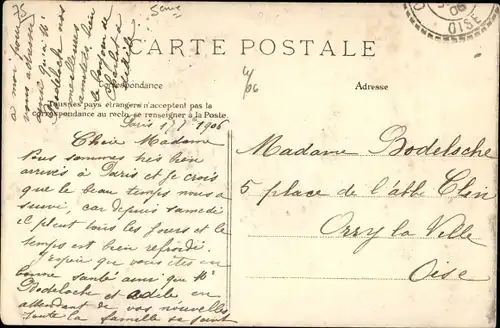 75
5 eme
06
OISE
CARTE POSTALE
Correspondance
Adresse
Tous les pays étrangers n'acceptent pas la
correspondance au recto, se renseigner à la Poste.
Paris 17 1906
Chère Madame
Nous sommes très bien
arrivés à Paris et je crois
que le beau temps nous a
suivi, car depuis samedi
il pleut tous les jours et le
temps est bien refroidi.
J'espère que vous êtes en
bonne santé ainsi que Mr
Bodeloche et Adèle, en
attendant de vos nouvelles
toute la famille se joint
à moi pour
vous adresser
ainsi qu'à Mr
Bodeloche nos
meilleures
amitiés, bien
le bonjour de
Madame Bodelsche
5 place de l'abbé Clin
Orry la Ville
Oise